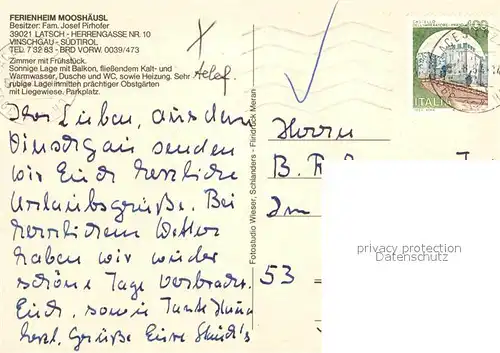 FERIENHEIM MOOSHÄUSL
Besitzer: Fam. Josef Pirhofer
39021 LATSCH - HERRENGASSE NR. 10
VINSCHGAU - SÜDTIROL
TEL. 7 32 83 - BRD VORW. 0039/473
Zimmer mit Frühstück.
Sonnige Lage mit Balkon, fließendem Kalt- und
Warmwasser, Dusche und WC, sowie Heizung. Sehr
ruhige Lage inmitten prächtiger Obstgärten
mit Liegewiese. Parkplatz.
Ihr Lieben, aus dem
Vinschgau senden
wir Euch herzliche
Urlaubsgrüße. Bei
herrlichem Wetter
haben wir wieder
schöne Tage verbracht.
Euch, sowie Tante
herzl. Grüße Eure
Fotostudio Wieser, Schlanders - Flindruck Meran
CASTELLO
400
ITALIA
Herrn
B.
Im
53
privacy protection
Datenschutz